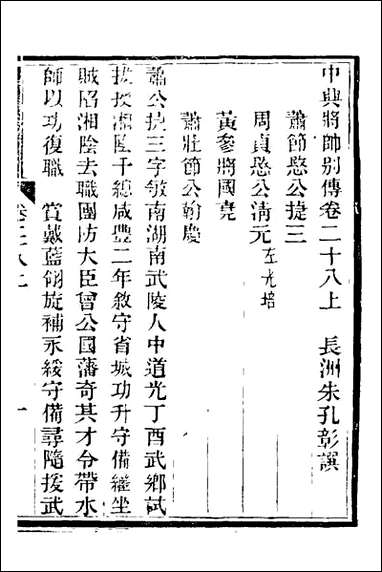 中興將帥别傳卷二十八上　長洲朱孔彰譔
蕭節愍公捷三
周貞愍公清元左光培
黃參將國堯
蕭壯節公翰慶
蕭公捷三字敏南湖南武陵人中道光丁酉武鄉試
拔授湘陰千總咸豐二年敘守省城功升守備繼坐
賊陷湘陰去職團防大臣曾公國藩奇其才令帶水
師以功復職　賞戴藍翎旋補永綏守備尋隨援武
卷二十八上
一